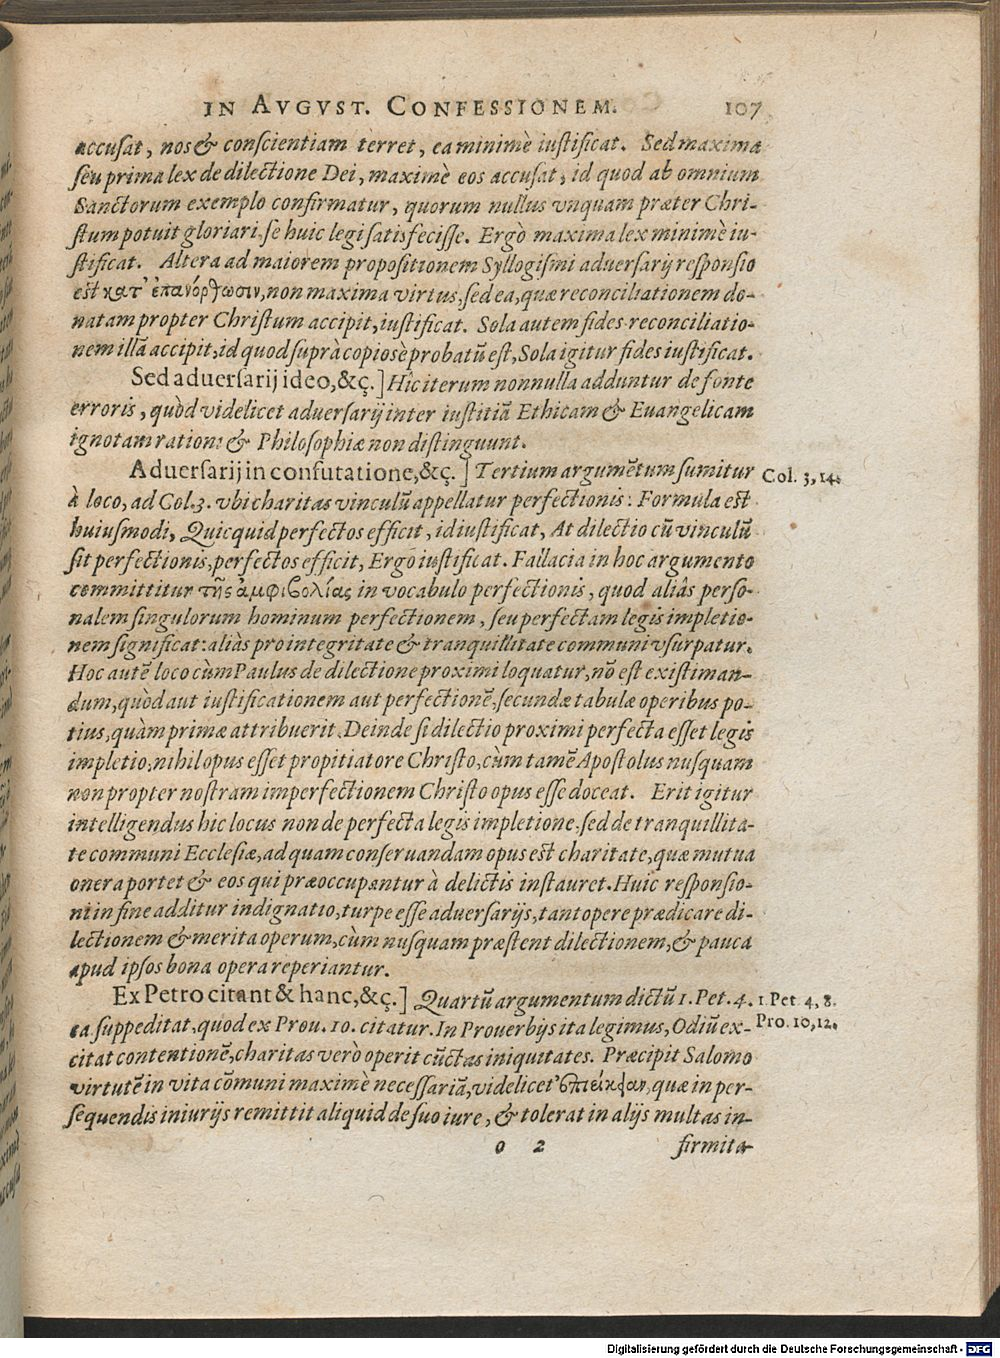 IN AVGVST. CONFESSIONEM. 107
accuſat, nos & conſcientiam terret, ea minimè iuſtificat. Sed maxima
ſeu prima lex de dilectione Dei, maximè eos accuſat, id quod ab omnium
Sanctorum exemplo confirmatur, quorum nullus vnquam præter Chri-
ſtum potuit gloriari, ſe huic legi ſatisfeciſſe. Ergò maxima lex minimè iu-
ſtificat. Altera ad maiorem propoſitionem Syllogiſmi aduerſarij reſponſio
eſt κατ' ἐπανόρθωσιν, non maxima virtus, ſed ea, quæ reconciliationem do-
natam propter Chriſtum accipit, iuſtificat. Sola autem fides reconciliatio-
nem illã accipit, id quod ſuprà copioſè probatũ eſt, Sola igitur fides iuſtificat.
Sed aduerſarij ideo, &ç.] Hîc iterum nonnulla adduntur de fonte
erroris, quòd videlicet aduerſarij inter iuſtitiã Ethicam & Euangelicam
ignotam rationi & Philoſophiæ non diſtinguunt.
Aduerſarij in confutatione, &ç.] Tertium argumẽtum ſumitur
Col. 3, 14.
à loco, ad Col. 3. vbi charitas vinculũ appellatur perfectionis: Formula eſt
huiuſmodi, Quicquid perfectos efficit, id iuſtificat, At dilectio cũ vinculũ
ſit perfectionis, perfectos efficit, Ergò iuſtificat. Fallacia in hoc argumento
committitur τῆς ἀμφιβολίας in vocabulo perfectionis, quod aliâs perſo-
nalem ſingulorum hominum perfectionem, ſeu perfectam legis impletio-
nem ſignificat: aliàs pro integritate & tranquillitate communi vſurpatur.
Hoc autẽ loco cùm Paulus de dilectione proximi loquatur, nõ eſt exiſtiman-
dum, quòd aut iuſtificationem aut perfectionẽ, ſecundæ tabulæ operibus po-
tius, quàm primæ attribuerit. Deinde ſi dilectio proximi perfecta eſſet legis
impletio, nihil opus eſſet propitiatore Chriſto, cùm tamẽ Apoſtolus nuſquam
non propter noſtram imperfectionem Chriſto opus eſſe doceat. Erit igitur
intelligendus hic locus non de perfecta legis impletione, ſed de tranquillita-
te communi Eccleſiæ, ad quam conſeruandam opus eſt charitate, quæ mutua
onera portet & eos qui præoccupantur à delictis inſtauret. Huic reſponſio-
ni in fine additur indignatio, turpe eſſe aduerſarijs, tantopere prædicare di-
lectionem & merita operum, cùm nuſquam præſtent dilectionem, & pauca
apud ipſos bona opera reperiantur.
Ex Petro citant & hanc, &ç.] Quartũ argumentum dictũ 1. Pet. 4.
1. Pet. 4, 8.
ea ſuppeditat, quod ex Prou. 10. citatur. In Prouerbijs ita legimus, Odiũ ex-
Pro. 10, 12.
citat contentionẽ, charitas verò operit cũctas iniquitates. Præcipit Salomo
virtutẽ in vita cõmuni maximè neceſſariã, videlicet ἐπιείκειαν, quæ in per-
ſequendis iniurijs remittit aliquid de ſuo iure, & tolerat in alijs multas in-
o 2 firmita-
Digitalisierung gefördert durch die Deutsche Forschungsgemeinschaft - DFG